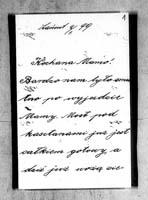 1
Łańcut 9/ 99
Kochana Mamo!
Bardzo nam było smu
tno po wyjeździe
Mamy Most pod
kasztanami już jest
całkiem gotowy a
dziś już wożą zie